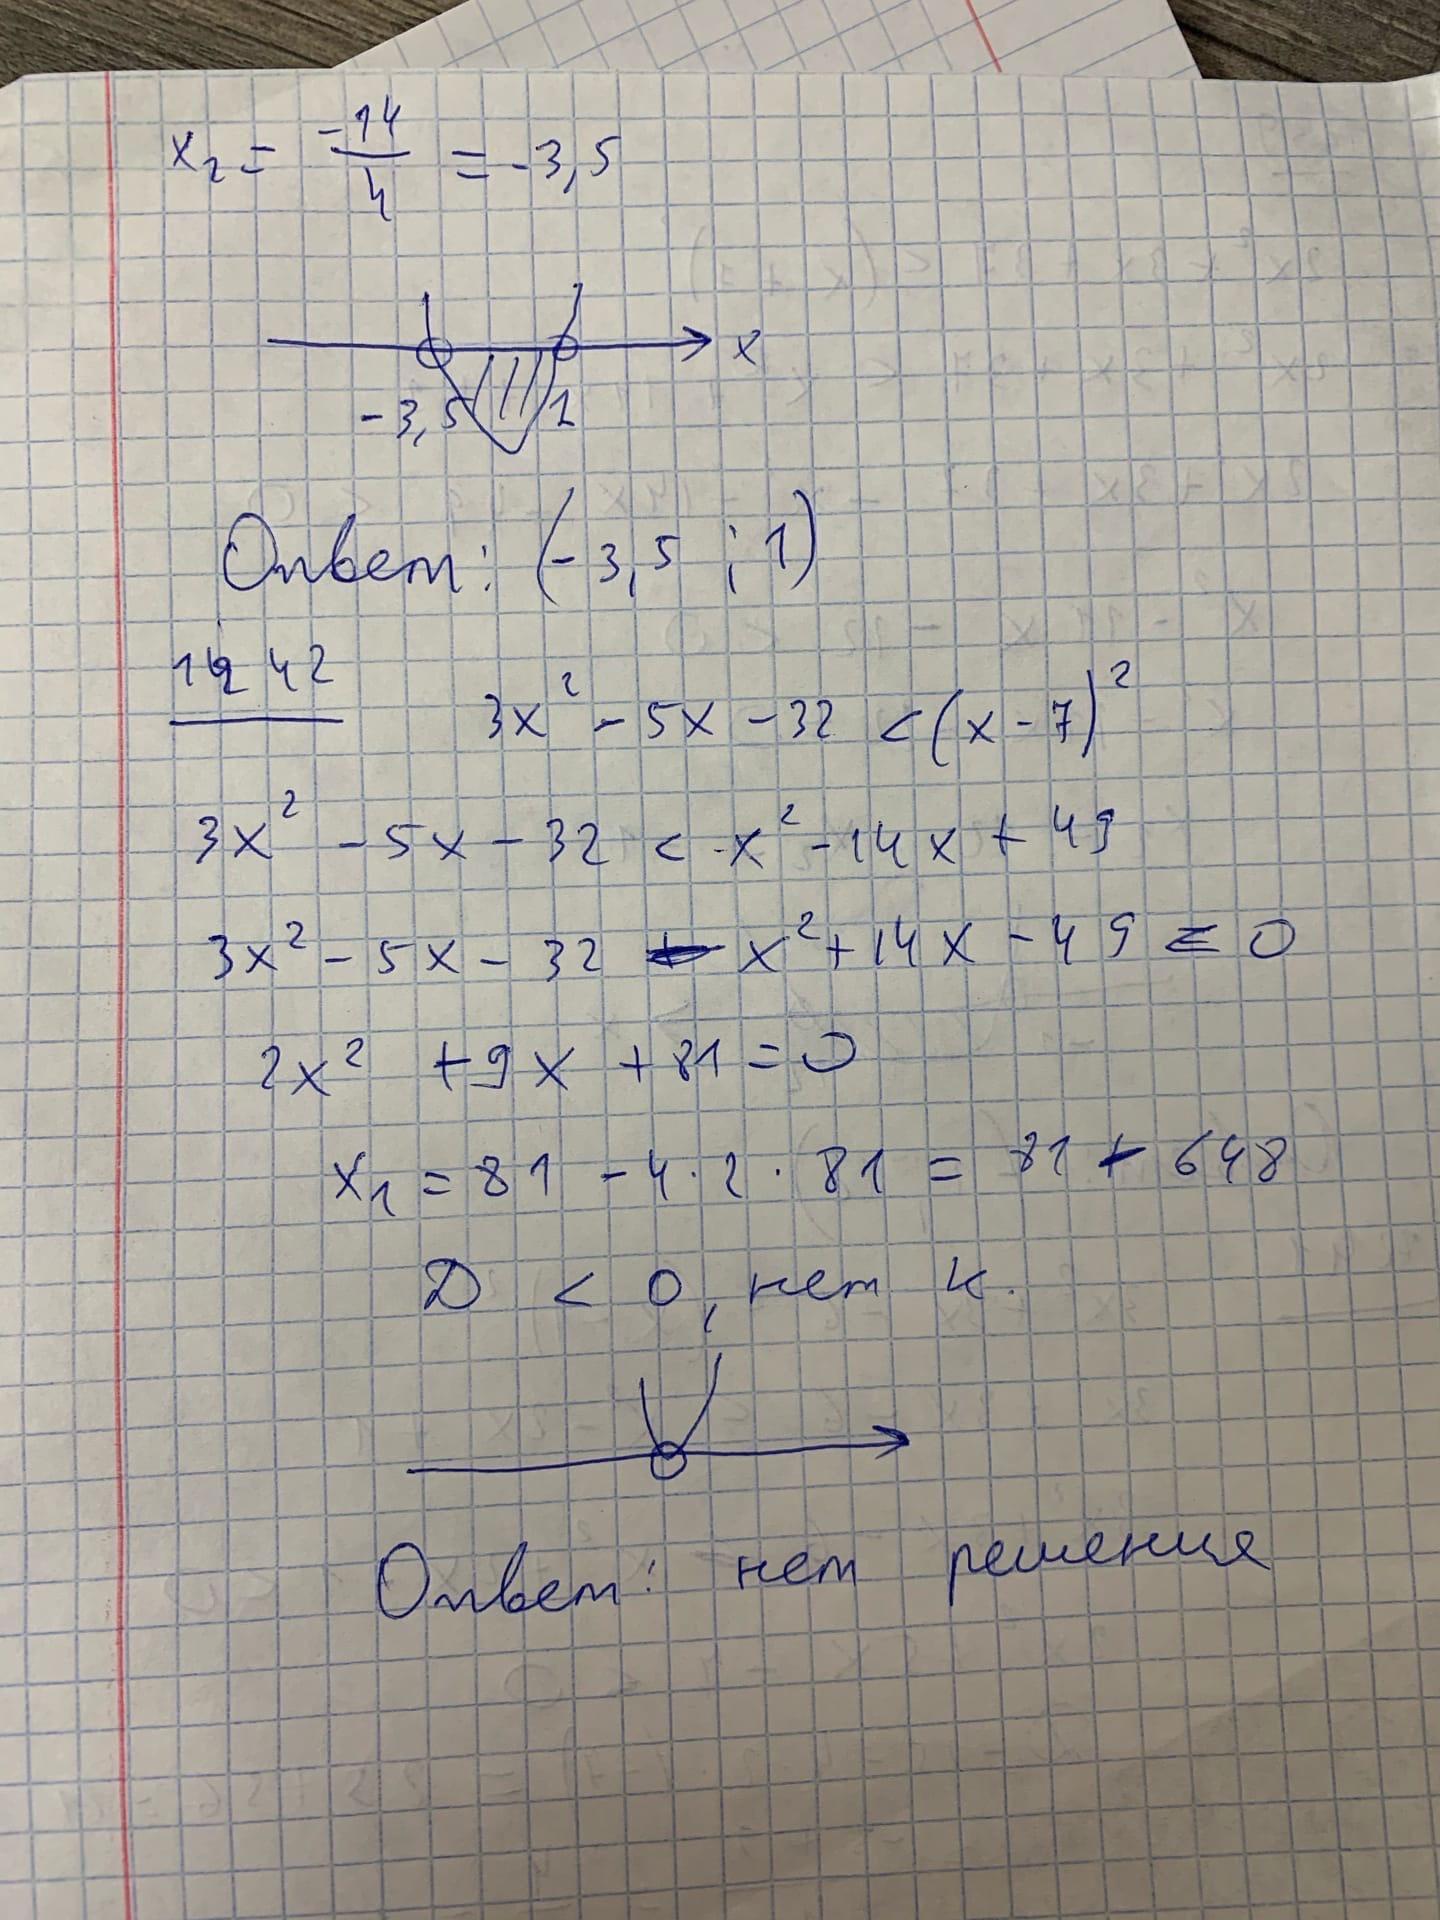 x₂ = -14/4 = -3,5
x
-3,5 1
Ответ: (-3,5 ; 1)
42 3x² - 5x - 32 < (x - 7)²
3x² - 5x - 32 < x² - 14x + 49
3x² - 5x - 32 - x² + 14x - 49 = 0
2x² + 9x + 81 = 0
x₁ = 81 - 4·2·81 = 81 - 648
D < 0, нет к.
Ответ: нет решения